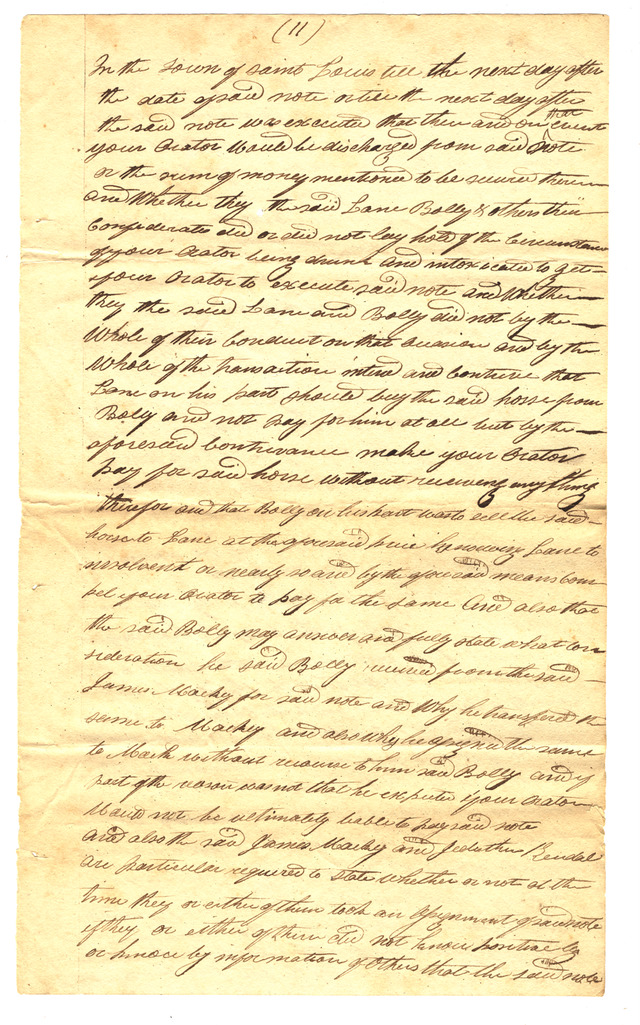 (11)
In the Town of Saint Louis till the next day after
the date of said note or till the next day after
the said note was executed that then and on that event
your Orator would be discharged from said note
or the sum of money mentioned to be secured therein
and Whether they the said Lane Bolly & others their
Confederates did or did not lay hold of the Circumstance
of your Orator being drunk and intoxicated to get
your Orator to execute said note and Whether
they the said Lane and Bolly did not by the
Whole of their Conduct on that occasion and by the
Whole of the transaction intend and Contrive that
Lane on his part should buy the said horse from
Bolly and not pay for him at all but by the
aforesaid Contrivance make your Orator
pay for said horse without receiving any thing
therefor and that Bolly on his part was to sell the said
horse to Lane at the aforesaid price knowing Lane to
insolvent or nearly so and by the aforesaid means Com
pel your Orator to pay for the same And also that
the said Bolly may answer and fully state what con
sideration he said Bolly received from the said
James Mackey for said note and Why he transfered
same to Mackey and also why he assigned the same
to Mack without recourse to him said Bolly and if
part of the reason was not that he expected your Orator
Would not be ultimately liable to pay said note
And also the said James Mackey and Jeduthn Kendal
are particular required to State whether or not at the
time they or either of them took an assignment of said note
if they or either of them did not know positive ly
or know by information of others that the said note